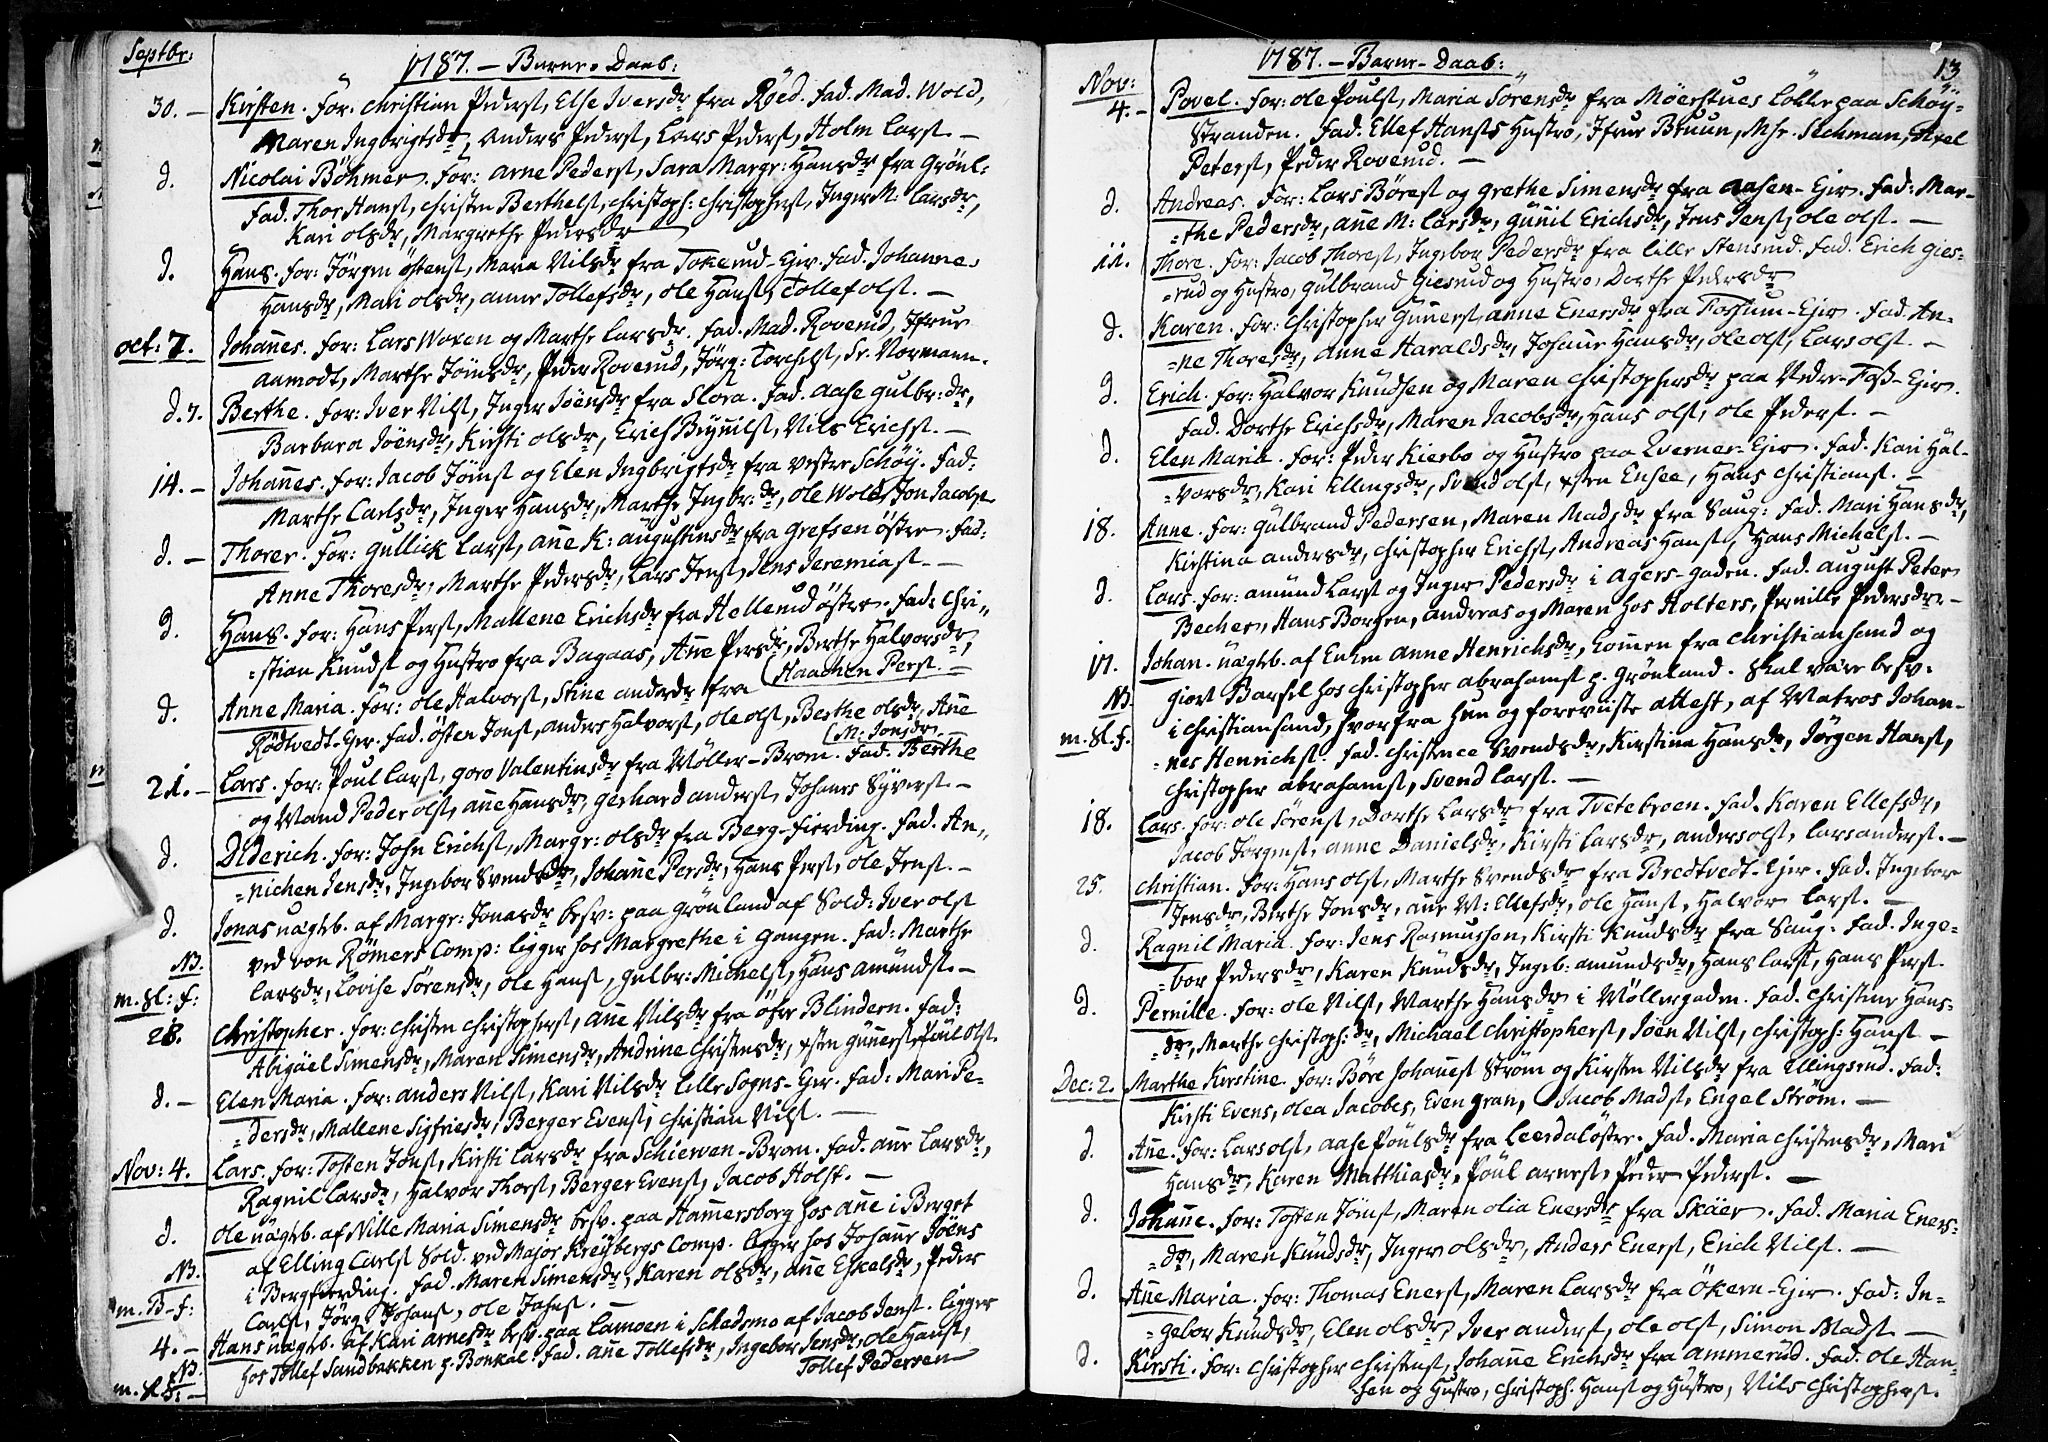 Septbr:
1787. – Barne-Daab:
30. – Kirsten. For. Christian Pederst, Else Iversdr fra Röed. Fad. Mad. Wold,
Maren Ingbrigtsdr, Anders Pederst, Lars Pederst, Holm Larst. –
d. Nicolai Böhmer. For: Arne Pederst, Sara Margr: Hansdr fra Grönl:
Fad. Thor Hanst, Christen Berthelst, Christoph: Christopherst, Inger M: Larsdr,
Kari Olsdr, Margrethe Pedersdr
d. Hans. For: Jörgen Östenst, Maria Nilsdr fra Tokerud-Eier. Fad. Johanne
Hansdr, Mari Olsdr, Anne Tollefsdr, Ole Hanst, Tollef Olst. –
Oct: 7. Johan̄es. For: Lars Woxen og Marthe Larsdr. Fad. Mad. Roverud, Jfrue
Aamodt, Marthe Jönsdr, Peder Roverud, Jörg: Torchelst, Sr. Normann.
d. 7. Berthe. For: Iver Nilst, Inger Jöensdr fra Flora. Fad. Aase Gulbr: dr,
Barbara Jöensdr, Kirsti Olsdr, Erich Brynilst, Nils Erichst. –
14. – Johan̄es. For: Jacob Jönst og Elen Ingbrigtsdr fra Vestre Schöy. Fad:
Marthe Carlsdr, Inger Hansdr, Marthe Ingbr: dr, Ole Wold, Jon Jacobst
d. – Thorer. For: Gullick Larst, An̄e K: Augustinsdr fra Grefsen östre. Fad:
Anne Thoresdr, Marthe Pedersdr, Lars Jenst, Jens Jeremiast. –
d. Hans. For: Hans Perst, Mallene Erichsdr fra Hellerud östre. Fad: Chri-
-stian Knudst og Hustro fra Bagaas, An̄e Persdr, Berthe Halvorsdr,
(Haachen Perst. –
d. Anne Maria. For: Ole Halvorst, Stine Andersdr fra
Rödtvedt-Eier. Fad. Östen Jonst, Anders Halvorst, Ole Olst, Berthe Olsdr, An̄e
(M: Jonsdr. –
21. – Lars. For: Poul Larst, Goro Valentinsdr fra Möller-Broen. Fad. Berthe
og Mand Peder Olst, An̄e Hansdr, Gerhard Anderst, Johanes Syverst. –
d. Diderich. For: John Erichst, Margr: Olsdr fra Berg-Fierding. Fad. An-
-nichen Jensdr, Ingebor Svendsdr, Johan̄e Persdr, Hans Perst, Ole Jenst. –
d. Jonas uægtb. af Margr: Jonasdr besv: paa Grönland af Sold: Iver Olst
ved von Römers Comp: ligger hos Margrethe i Gangen. Fad: Marthe
NB. Larsdr, Lovise Sörensdr, Ole Hanst, Gulbr: Michelst, Hans Amundst. –
m. sl: f:
28. Christopher. For: Christen Christopherst, An̄e Nilsdr fra öfre Blindern. Fad:
Abigäel Simensdr, Maren Simensdr, Andrine Christensdr, Östen Gun̄erst, Poul Olst.
d. – Elen Maria. For: Anders Nilst, Kari Nilsdr lille Sogns-Eier. Fad: Mari Pe-
-dersdr, Mallene Sigfriesdr, Berger Evenst, Christian Nilst. –
Nov: 4. Lars. For: Tosten Jonst, Kirsti Larsdr fra Schierven-Broen. Fad. An̄e Larsdr,
Ragnil Larsdr, Halvor Thorst, Berger Evenst, Jacob Holst. –
d. Ole uægtb. af Nille Maria Simensdr besv. paa Ham̄ersborg hos An̄e i Berget
af Elling Carlst Sold. ved Major Kreybergs Comp. ligger hos Johan̄e Jöens
NB. i Bergfierding. Fad. Maren Simensdr, Karen Olsdr, An̄e Eskelsdr, Peder
m. B-f: Carlst, Jörg: Johanst, Ole Johnst. –
4. – Hans uægtb. af Kari Arnesdr besv. paa Lamoen i Schedsmo af Jacob Jenst. ligger
NB. hos Tollef Sandbakken p. Bonkal. Fad. An̄e Tollefsdr, Ingebor Jensdr, Ole Hanst,
m. sl. f: – Tollef Pedersen
13
1787. – Barne-Daab:
Nov:
4. – Povel. For: Ole Poulst, Maria Sörensdr fra Möerstues Lökke paa Schöy-
Stranden. Fad. Ellef Hansts Hustro, Jfrue Bruun, Mhr. Sechman, Axel
Peterst, Peder Roverud. –
d. Andreas. For: Lars Börest og Grethe Simensdr fra Aasen-Eier. Fad: Mar-
-the Pedersdr, An̄e M: Larsdr, Gun̄il Erichsdr, Jens Jenst, Ole Olst. –
11. Thore. For: Jacob Thorest, Ingebor Pedersdr fra lille Stensrud. Fad. Erich Gies-
-rud og Hustro, Gulbrand Giesrud og Hustro, Dorthe Pedersdr
d. Karen. For: Christopher Gun̄erst, Anne Enersdr fra Fossum-Eier. Fad. An-
-ne Thoresdr, Anne Haraldsdr, Johan̄e Hansdr, Ole Olst, Lars Olst. –
d. Erich. For: Halvor Knudsen og Maren Christophersdr paa Nedre-Foss-Eier.
Fad. Dorthe Erichsdr, Maren Jacobsdr, Hans Olst, Ole Pederst. –
d. Elen Maria. For: Peder Kierbo og Hustro paa Qverner-Eier. Fad. Kari Hal-
-vorsdr, Kari Ellingsdr, Svend Olst, Östen Ensee, Hans Christianst. –
18. Anne. For: Gulbrand Pedersen, Maren Madsdr fra Saug: Fad. Mari Hansdr,
Kirstina Andersdr, Christopher Erichst, Andreas Hanst, Hans Michelst. –
d. Lars. For: Amund Larst og Inger Pedersdr i Agers-Gaden. Fad. August Peter
Becher, Hans Borgen, Andreas og Maren hos Holters, Pernille Pedersdr –
11. Johan. uægtb. af Enken Anne Henrichsdr, kom̄en fra Christiansand og
NB. giort Barsel hos Christopher Abrahamst p. Grönland. Skal være besv.
i Christiansand, hvorfra hun og foreviiste Attest, af Matros Johan-
m. sl. f. -nes Henrichst. Fad. Christence Svendsdr, Kirstina Hansdr, Jörgen Hanst,
Christopher Abrahamst, Svend Larst. –
18. Lars. For: Ole Sörenst, Dorthe Larsdr fra Tvetebroen. Fad. Karen Ellefsdr,
Jacob Jörgenst, Anne Danielsdr, Kirsti Larsdr, Anders Olst, Lars Anderst. –
25. Christian. For: Hans Olst, Marthe Svendsdr fra Bredtvedt-Eier. Fad. Ingebor
Jensdr, Berthe Jonsdr, An̄e M: Ellefsdr, Ole Hanst, Halvor Larst. –
d. Ragnil Maria. For: Jens Rasmussen, Kirsti Knudsdr fra Saug: Fad. Inge-
-bor Pedersdr, Karen Knudsdr, Ingeb: Amundsdr, Hans Larst, Hans Perst.
d. Pernille. For: Ole Nilst, Marthe Hansdr i Möllergaden. Fad. Christine Hans-
-dr, Marthe Christoph: dr, Michael Christopherst, Jöen Nilst, Christoph: Hanst –
Dec: 2. Marthe Kirstine. For: Böre Johan̄est Ström og Kirsten Nilsdr fra Ellingsrud. Fad:
Kirsti Evens, Olea Jacobes, Even Gran, Jacob Madst, Engel Ström. –
d. An̄e. For: Lars Olst, Aase Poulsdr fra Leerdal östre. Fad. Maria Christensdr, Mari
Hansdr, Karen Matthiasdr, Poul Arnest, Peder Pederst. –
d. Johan̄e. For: Tosten Jönst, Maren Olia Enersdr fra Skäer. Fad. Maria Eners-
-dr, Maren Knudsdr, Inger Olsdr, Anders Enerst, Erich Nilst. –
d. An̄e Maria. For: Thomas Enerst, Maren Larsdr fra Ökern-Eier. Fad: In-
-gebor Knudsdr, Elen Olsdr, Iver Anderst, Ole Olst, Simon Madst –
d. Kirsti. For: Christopher Christenst, Johan̄e Erichsdr fra Ammerud. Fad. Ole Han-
-sen og Hustro, Christoph. Hanst og Hustro, Nils Christopherst.